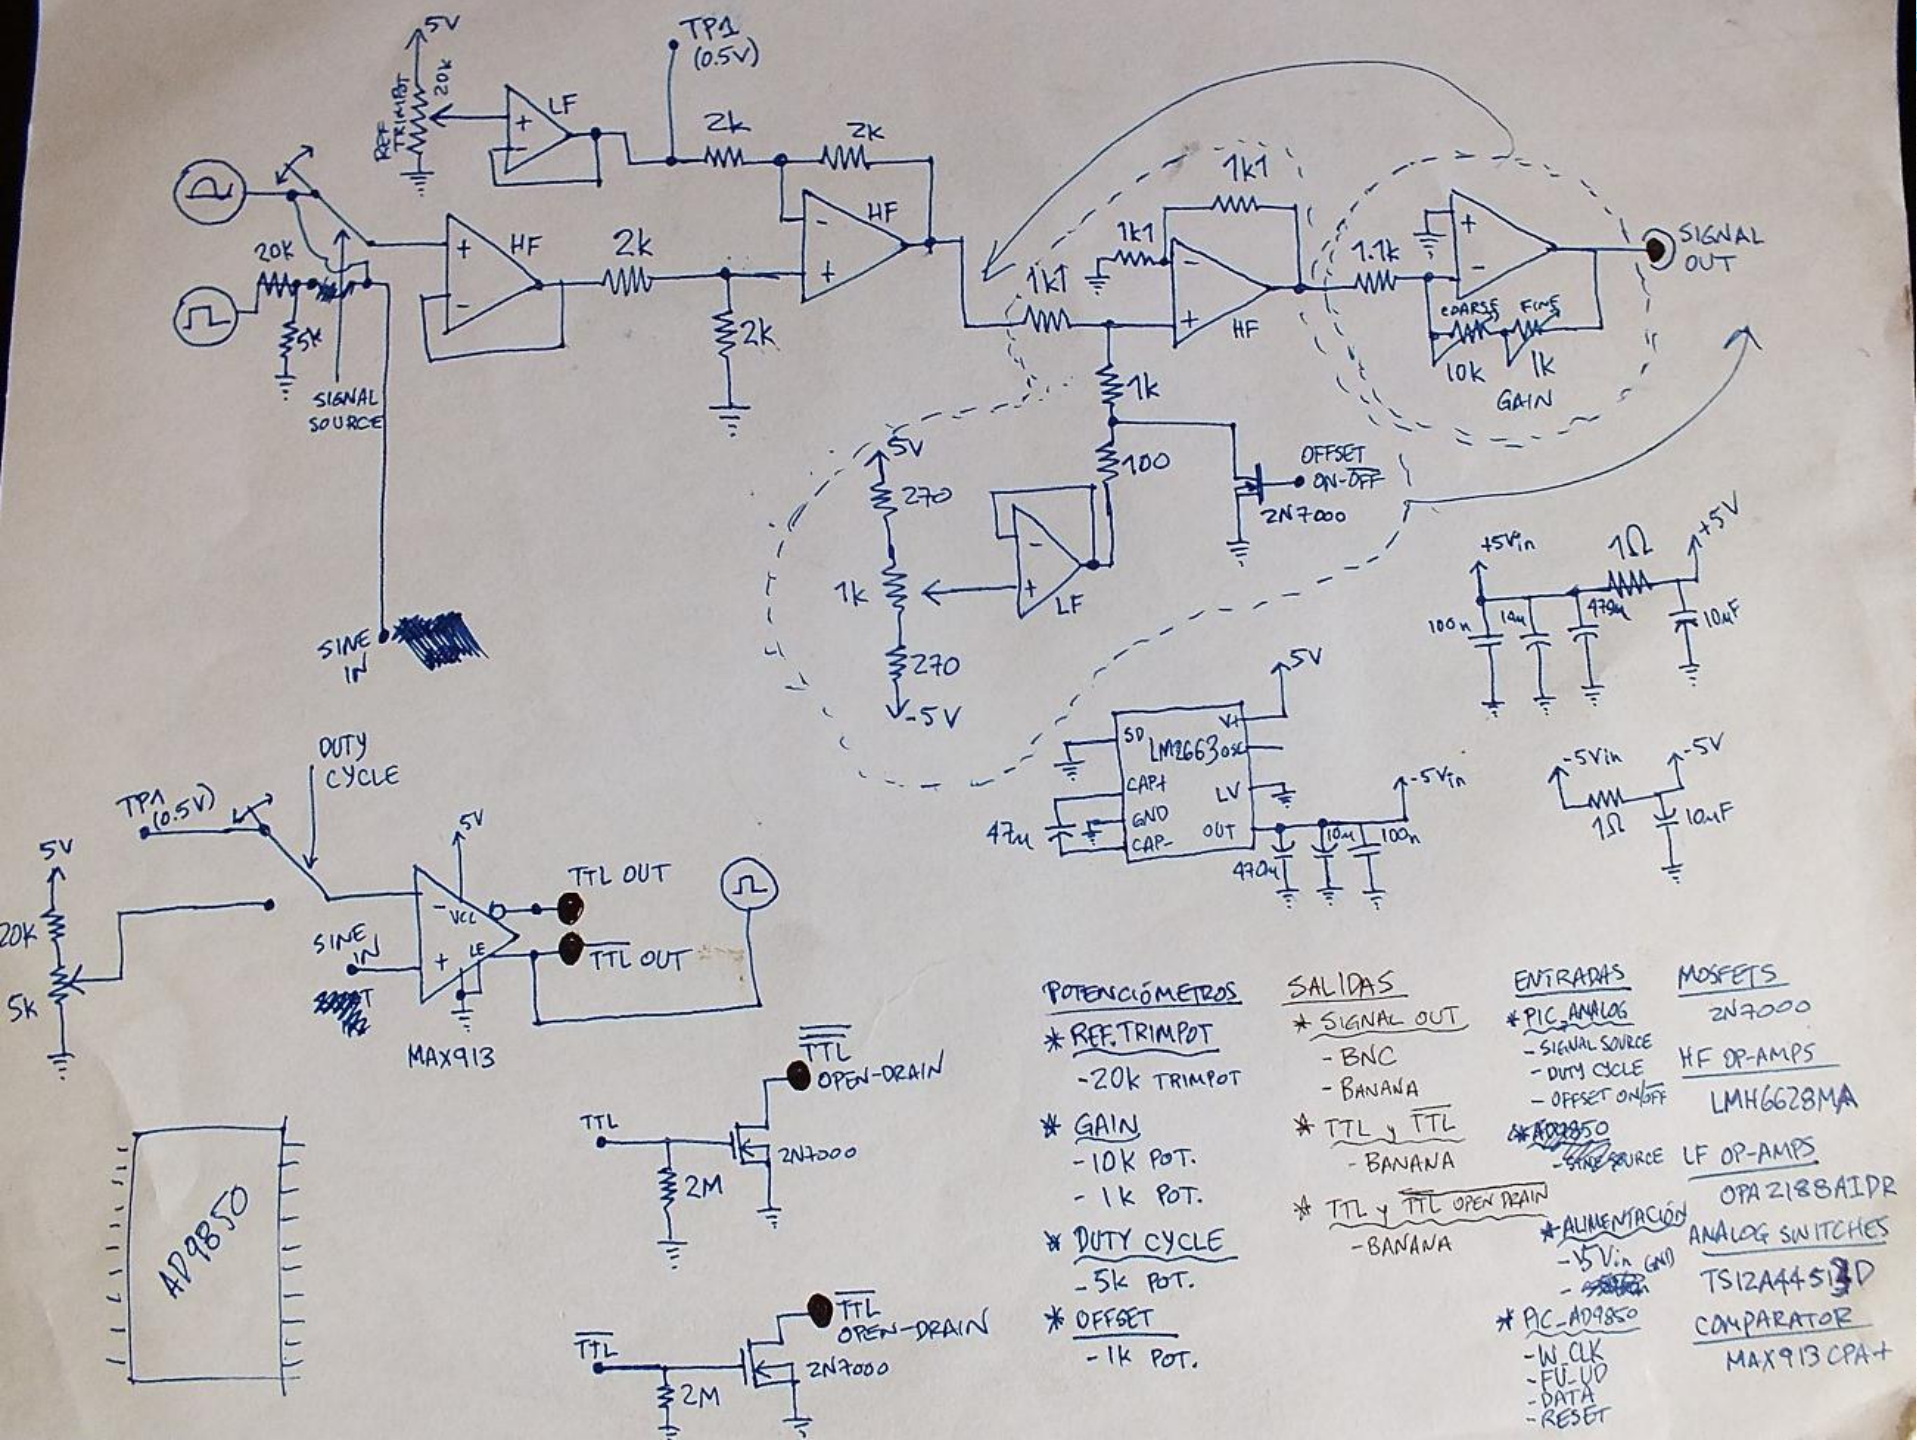 5V
REF
TRIMPOT
20k
LF
TP1
(0.5V)
2k
2k
HF
20k
5k
SIGNAL
SOURCE
HF
2k
2k
1k1
1k1
1k1
HF
1.1k
COARSE
FINE
10k
1k
GAIN
SIGNAL
OUT
+
-
+
-
-
+
-
+
+
-
1k
100
OFFSET
ON-OFF
2N7000
5V
270
1k
270
-5V
-
+
LF
SINE
IN
+5Vin
1Ω
+5V
100n
10u
470u
10uF
5V
SD
V+
LM2663
OSC
CAP+
LV
GND
OUT
CAP-
47u
-5Vin
470u
10u
100n
-5Vin
1Ω
-5V
10uF
DUTY
CYCLE
TP1
(0.5V)
5V
20k
5k
5V
-
VCC
+
LE
SINE
IN
MAX913
TTL OUT
TTL OUT
TTL
OPEN-DRAIN
TTL
2M
2N7000
TTL
OPEN-DRAIN
TTL
2M
2N7000
AD9850
POTENCIÓMETROS
* REF. TRIMPOT
-20k TRIMPOT
* GAIN
-10K POT.
- 1k POT.
* DUTY CYCLE
-5k POT.
* OFFSET
-1k POT.
SALIDAS
* SIGNAL OUT
- BNC
- BANANA
* TTL y TTL
- BANANA
* TTL y TTL OPEN DRAIN
-BANANA
ENTRADAS
* PIC_ANALOG
- SIGNAL SOURCE
- DUTY CYCLE
- OFFSET ON/OFF
* AD9850
* ALIMENTACIÓN
-5Vin GND
* PIC_AD9850
-W_CLK
-FU_UD
-DATA
-RESET
MOSFETS
2N7000
HF OP-AMPS
LMH6628MA
LF OP-AMPS
OPA2188AIDR
ANALOG SWITCHES
COMPARATOR
MAX913CPA+